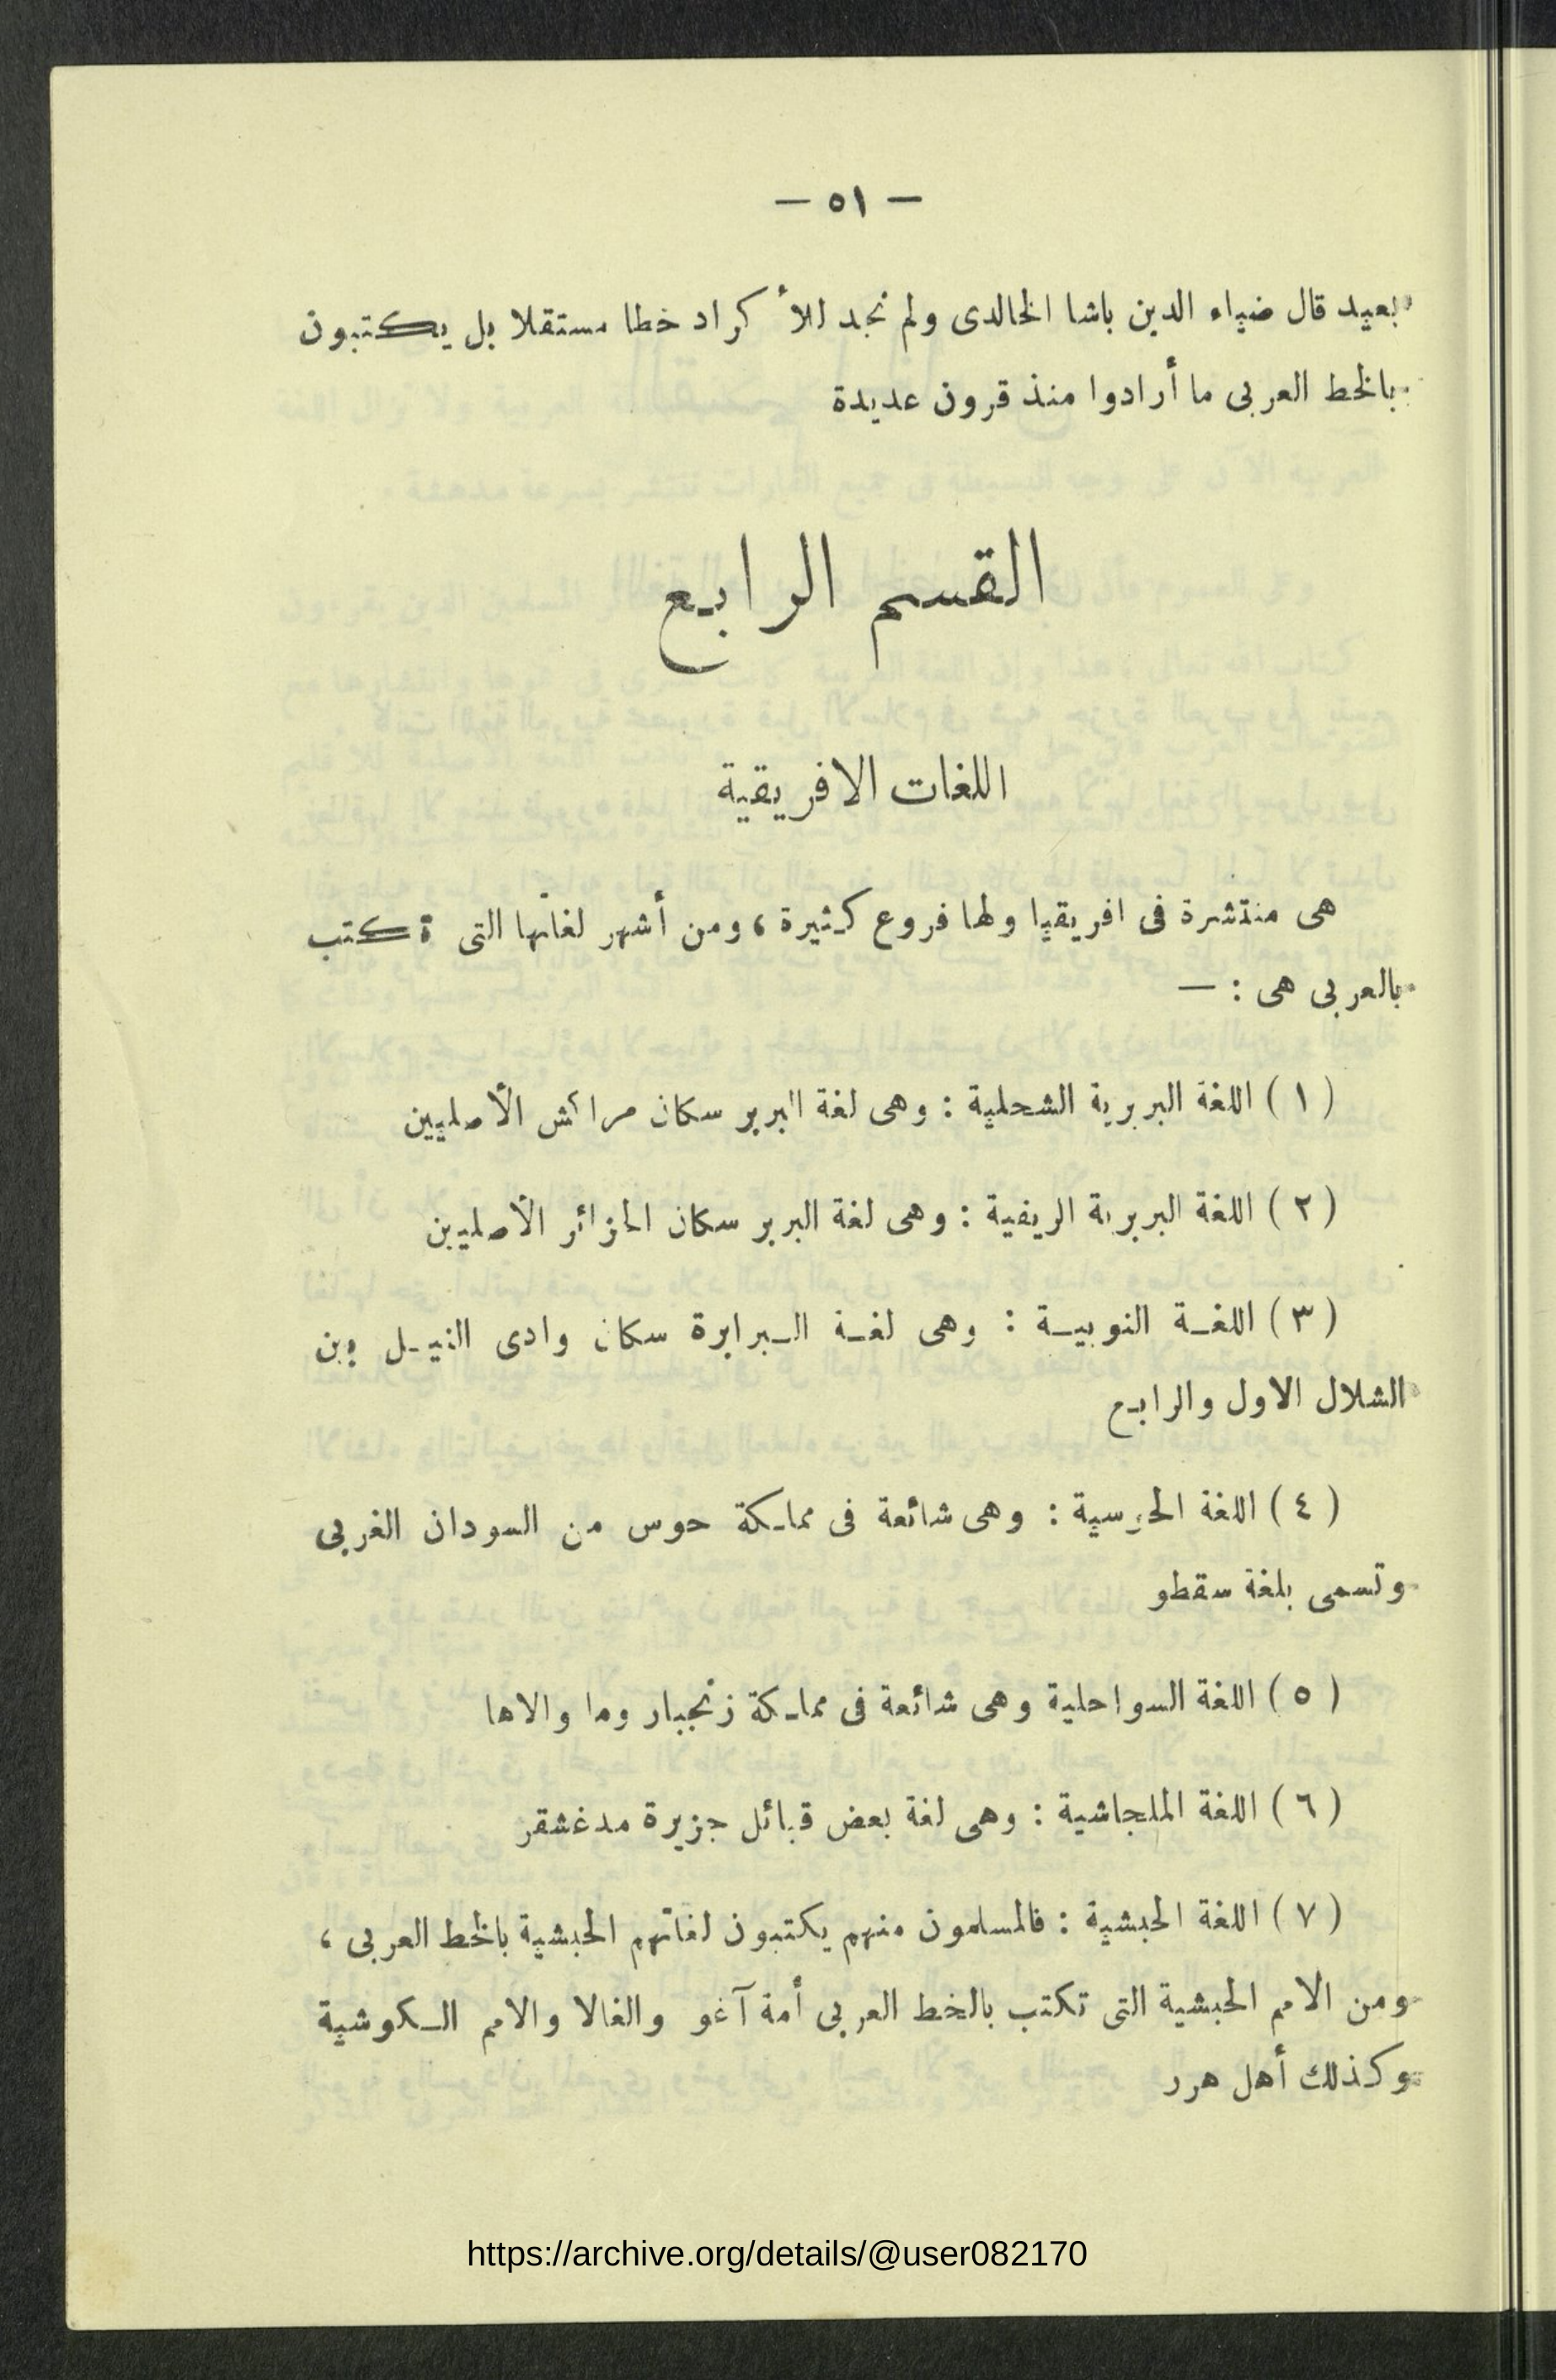 — ٥١ —
بعيد قال ضياء الدين باشا الخالدى ولم نجد للأكراد خطا مستقلا بل يكتبون
بالخط العربى ما أرادوا منذ قرون عديدة
القسم الرابع
اللغات الافريقية
هى منتشرة فى افريقيا ولها فروع كثيرة ، ومن أشهر لغاتها التى تكتب
بالعربى هى : —
( ١ ) اللغة البربرية الشحلية : وهى لغة البربر سكان مراكش الأصليين
( ٢ ) اللغة البربرية الريفية : وهى لغة البربر سكان الجزائر الأصليين
( ٣ ) اللغة النوبية : وهى لغة البرابرة سكان وادى النيل بين
الشلال الاول والرابع
( ٤ ) اللغة الحوسية : وهى شائعة فى مملكة حوس من السودان الغربى
وتسمى بلغة سقطو
( ٥ ) اللغة السواحلية وهى شائعة فى مملكة زنجبار وما والاها
( ٦ ) اللغة الملجاشية : وهى لغة بعض قبائل جزيرة مدغشقر
( ٧ ) اللغة الحبشية : فالمسلمون منهم يكتبون لغاتهم الحبشية بالخط العربى ،
ومن الامم الحبشية التى تكتب بالخط العربى أمة آغو والغالا والامم الكوشية
وكذلك أهل هرر
https://archive.org/details/@user082170